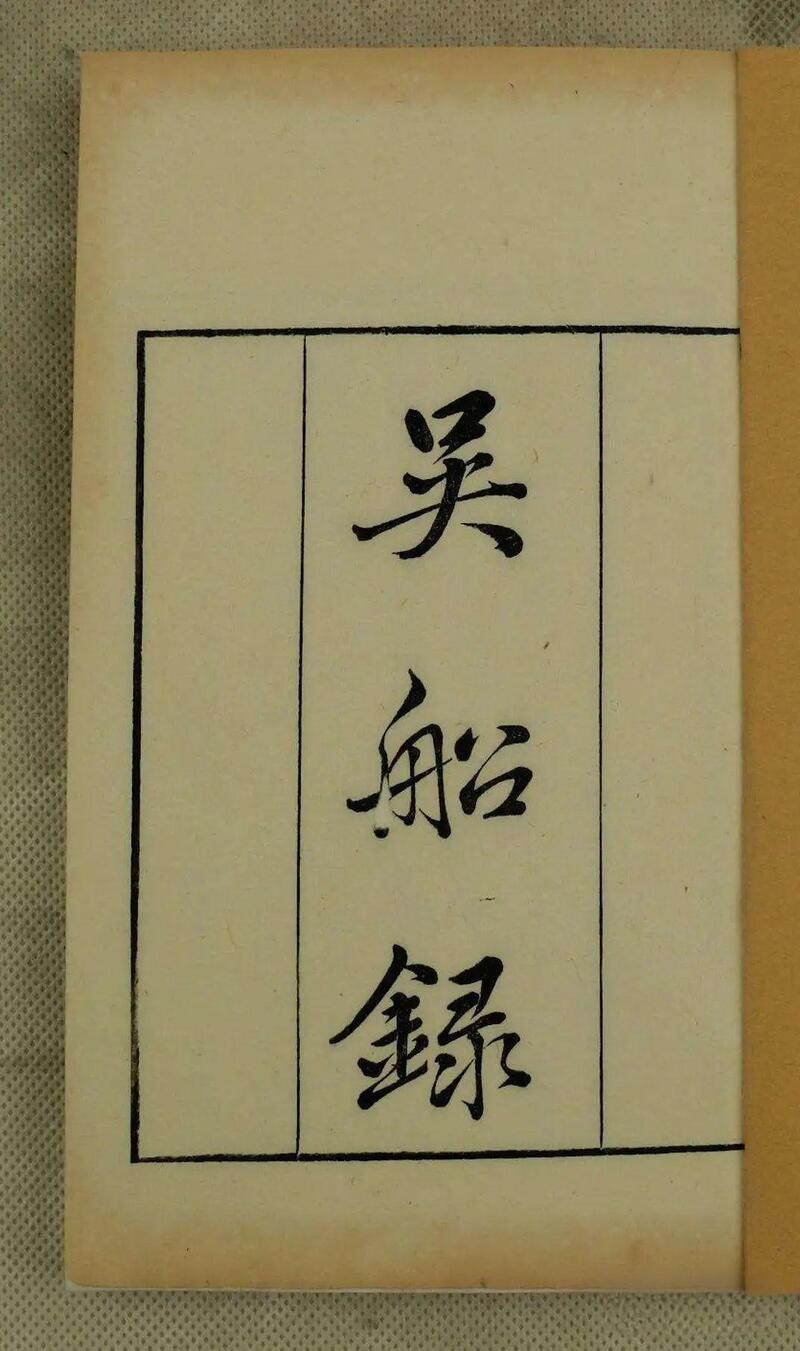 吴船録